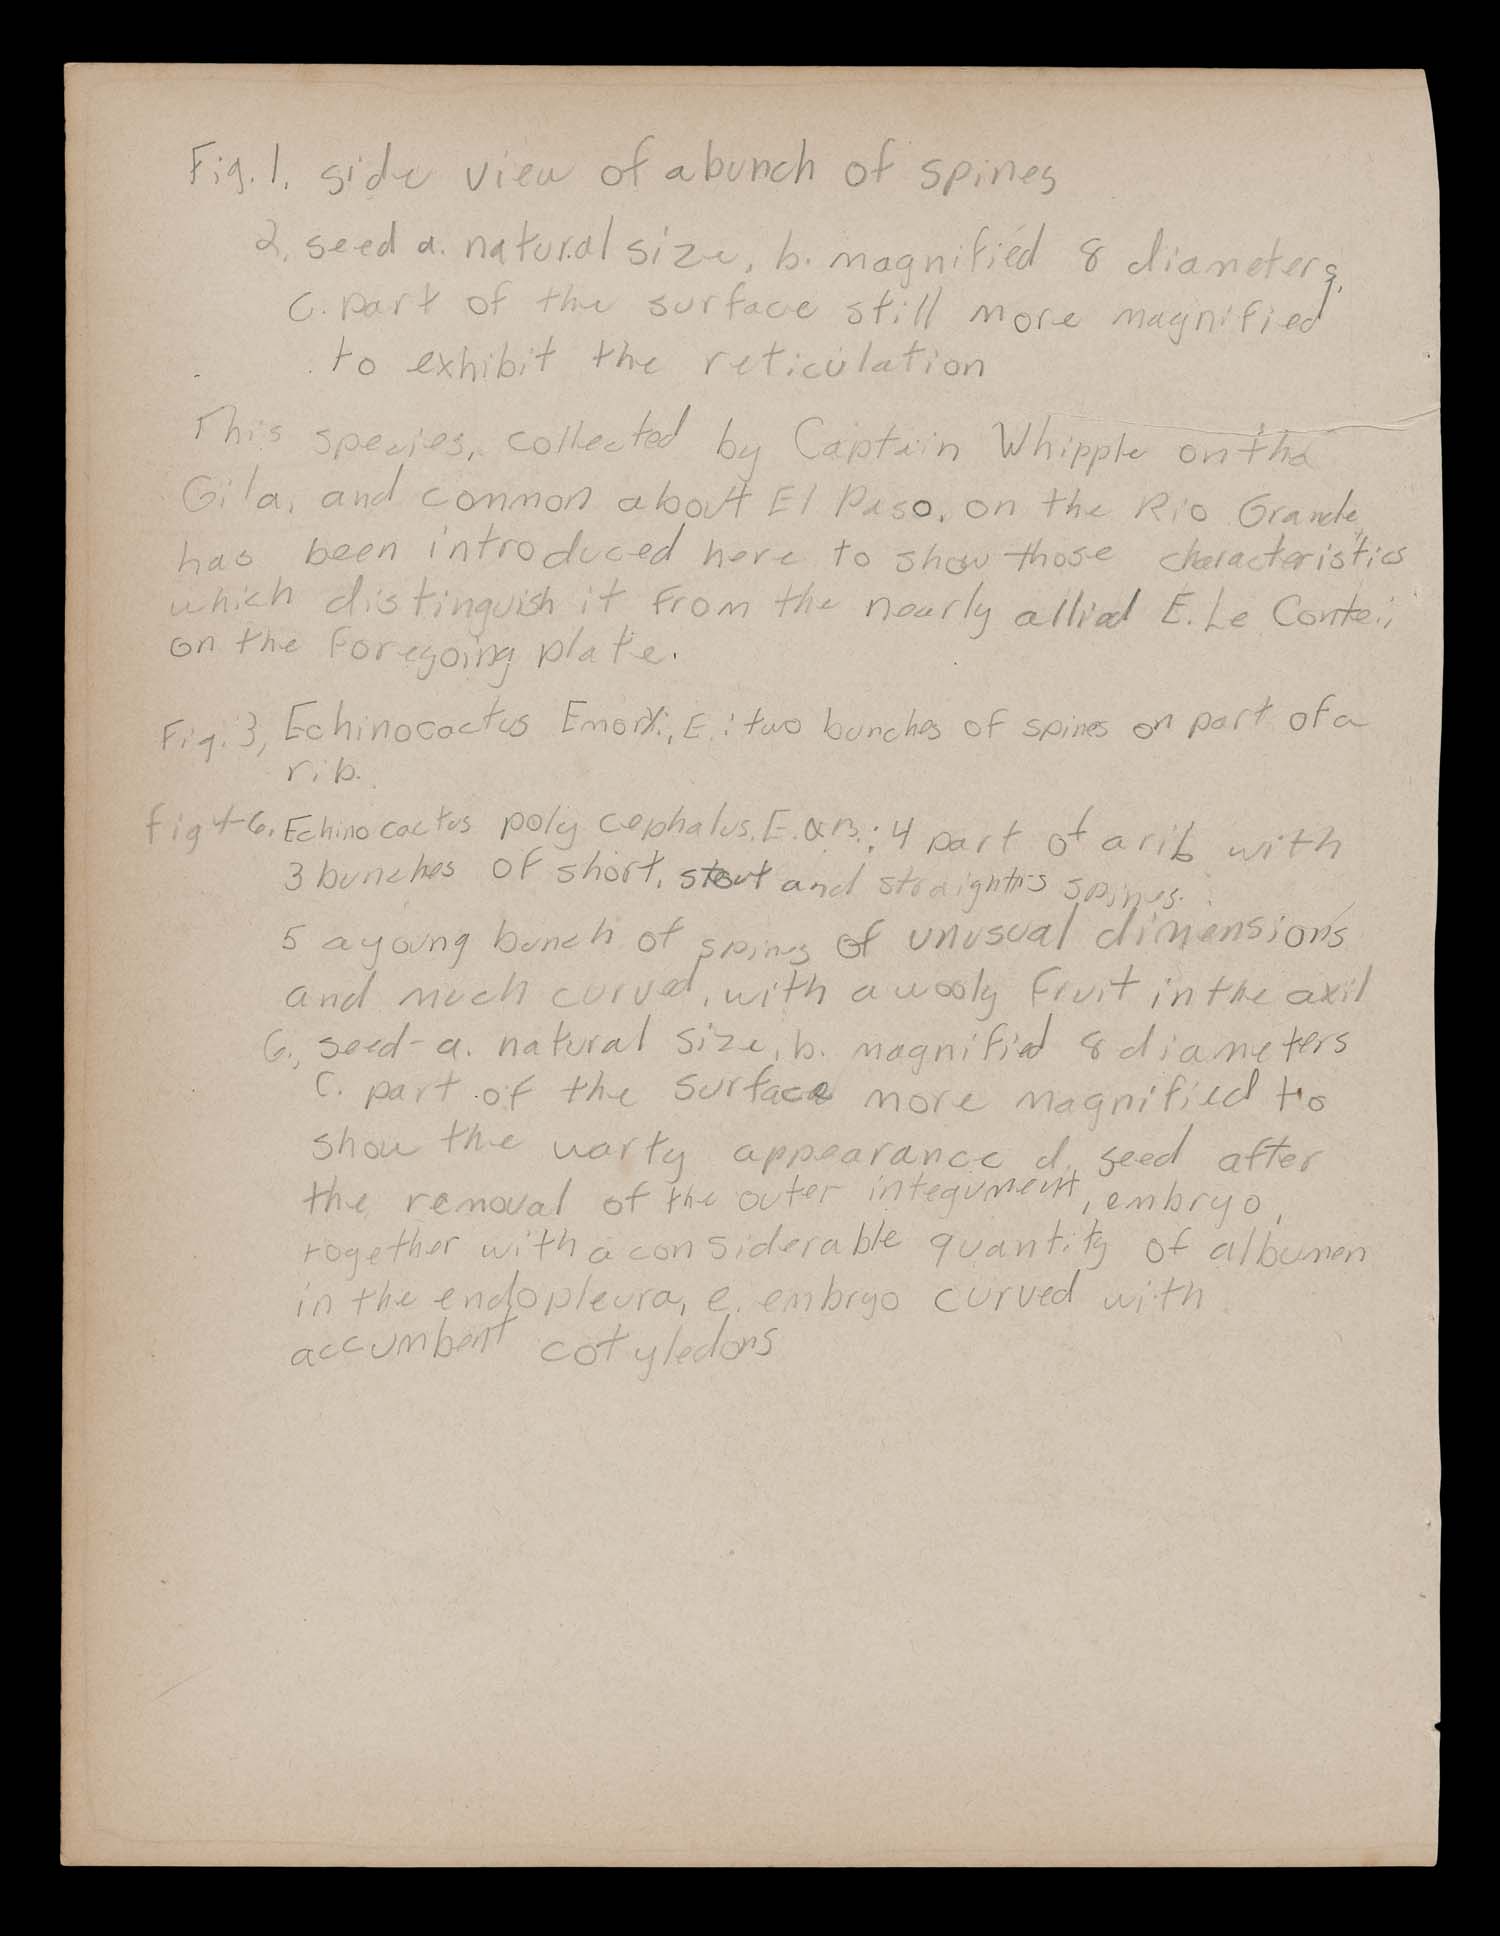 Fig. 1. side view of a bunch of spines
2, seed a. natural size, b. magnified 8 diameters,
C. part of the surface still more magnified
to exhibit the reticulation
This species, collected by Captain Whipple on the
Gila, and common about El Paso, on the Rio Grande,
has been introduced here to show those characteristics
which distinguish it from the nearly allied E. Le Contei,
on the foregoing plate.
Fig. 3, Echinocactus Emoryi, E.: two bunches of spines on part of a
rib.
fig 4-6. Echinocactus polycephalus. E. & B.: 4 part of a rib with
3 bunches of short, stout and spines.
5 a young bunch of spines of unusual dimensions
and much curved, with a wooly fruit in the axil
6., seed- a. natural size, b. magnified 8 diameters
C. part of the surface more magnified to
show the warty appearance d. seed after
the removal of the outer integument, embryo,
together with a considerable quantity of albumen
in the endopleura, e. embryo curved with
accumbent cotyledons